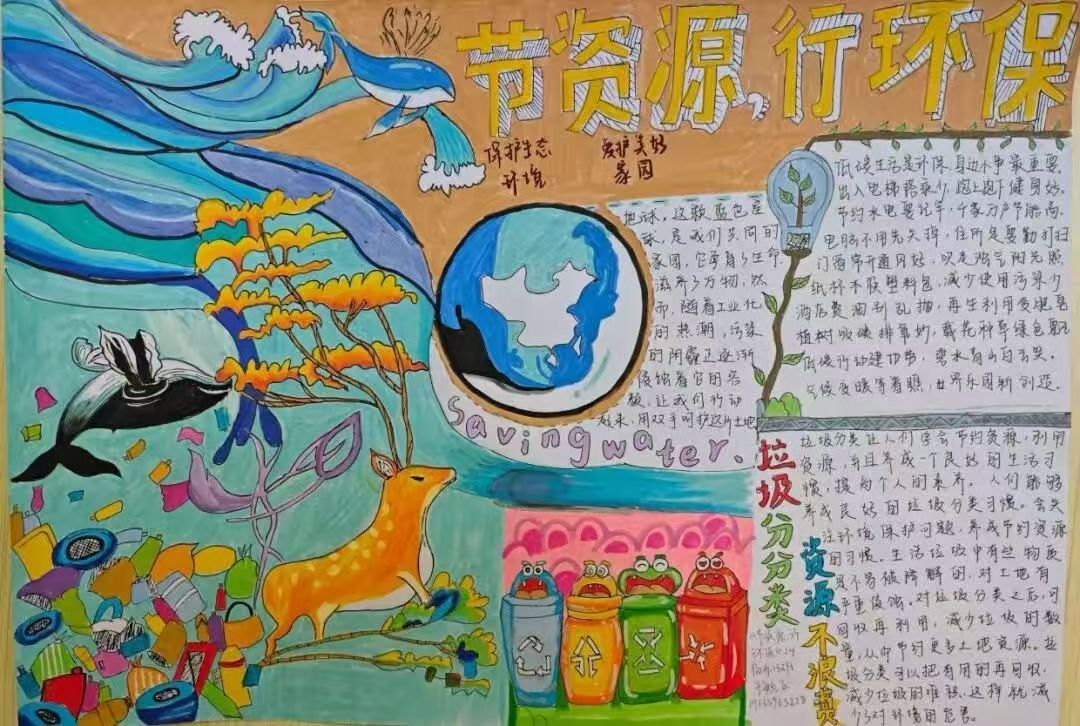 节资源,行环保
保护生态
环境
爱护美好
家园
地球，这颗蓝色星
球，是我们共同的
家园，它孕育了生命，
滋养了万物，然
而，随着工业化
的热潮，污染
的阴霾正逐渐
侵蚀着它的容
颜，让我们行动
起来，用双手呵护这片土地
Saving water.
低碳生活是环保，身边小事最重要。
出入电梯搭乘少，跑上跑下健身妙。
节约水电要记牢，千家万户节能高。
电脑不用先关掉，住所定要勤打扫
门窗常开通风好，
纸杯木筷塑料包，减少使用污染少
酒后费油别乱抛，再生利用变肥皂
植树吸碳排氧妙，栽花种草绿色要
低碳行动建功劳，要水青山白云笑。
气候变暖等着瞧，世界乐园新创造。
垃圾分分类
资源不浪费
垃圾分类让人们学会节约资源，利用
资源，并且养成一个良好的生活习
惯，提高个人的素养。人们能够
养成良好的垃圾分类习惯。会关
注环境保护问题，养成节约资源
的习惯。生活垃圾中有些物质
是不易被降解的，对土地有
严重侵蚀。对垃圾分类之后，可
回收再利用，减少垃圾的数
量，从而节约更多土地资源。垃
圾分类可以把有用的再回收，
减少垃圾的堆积，这样就减
少了对环境的危害。